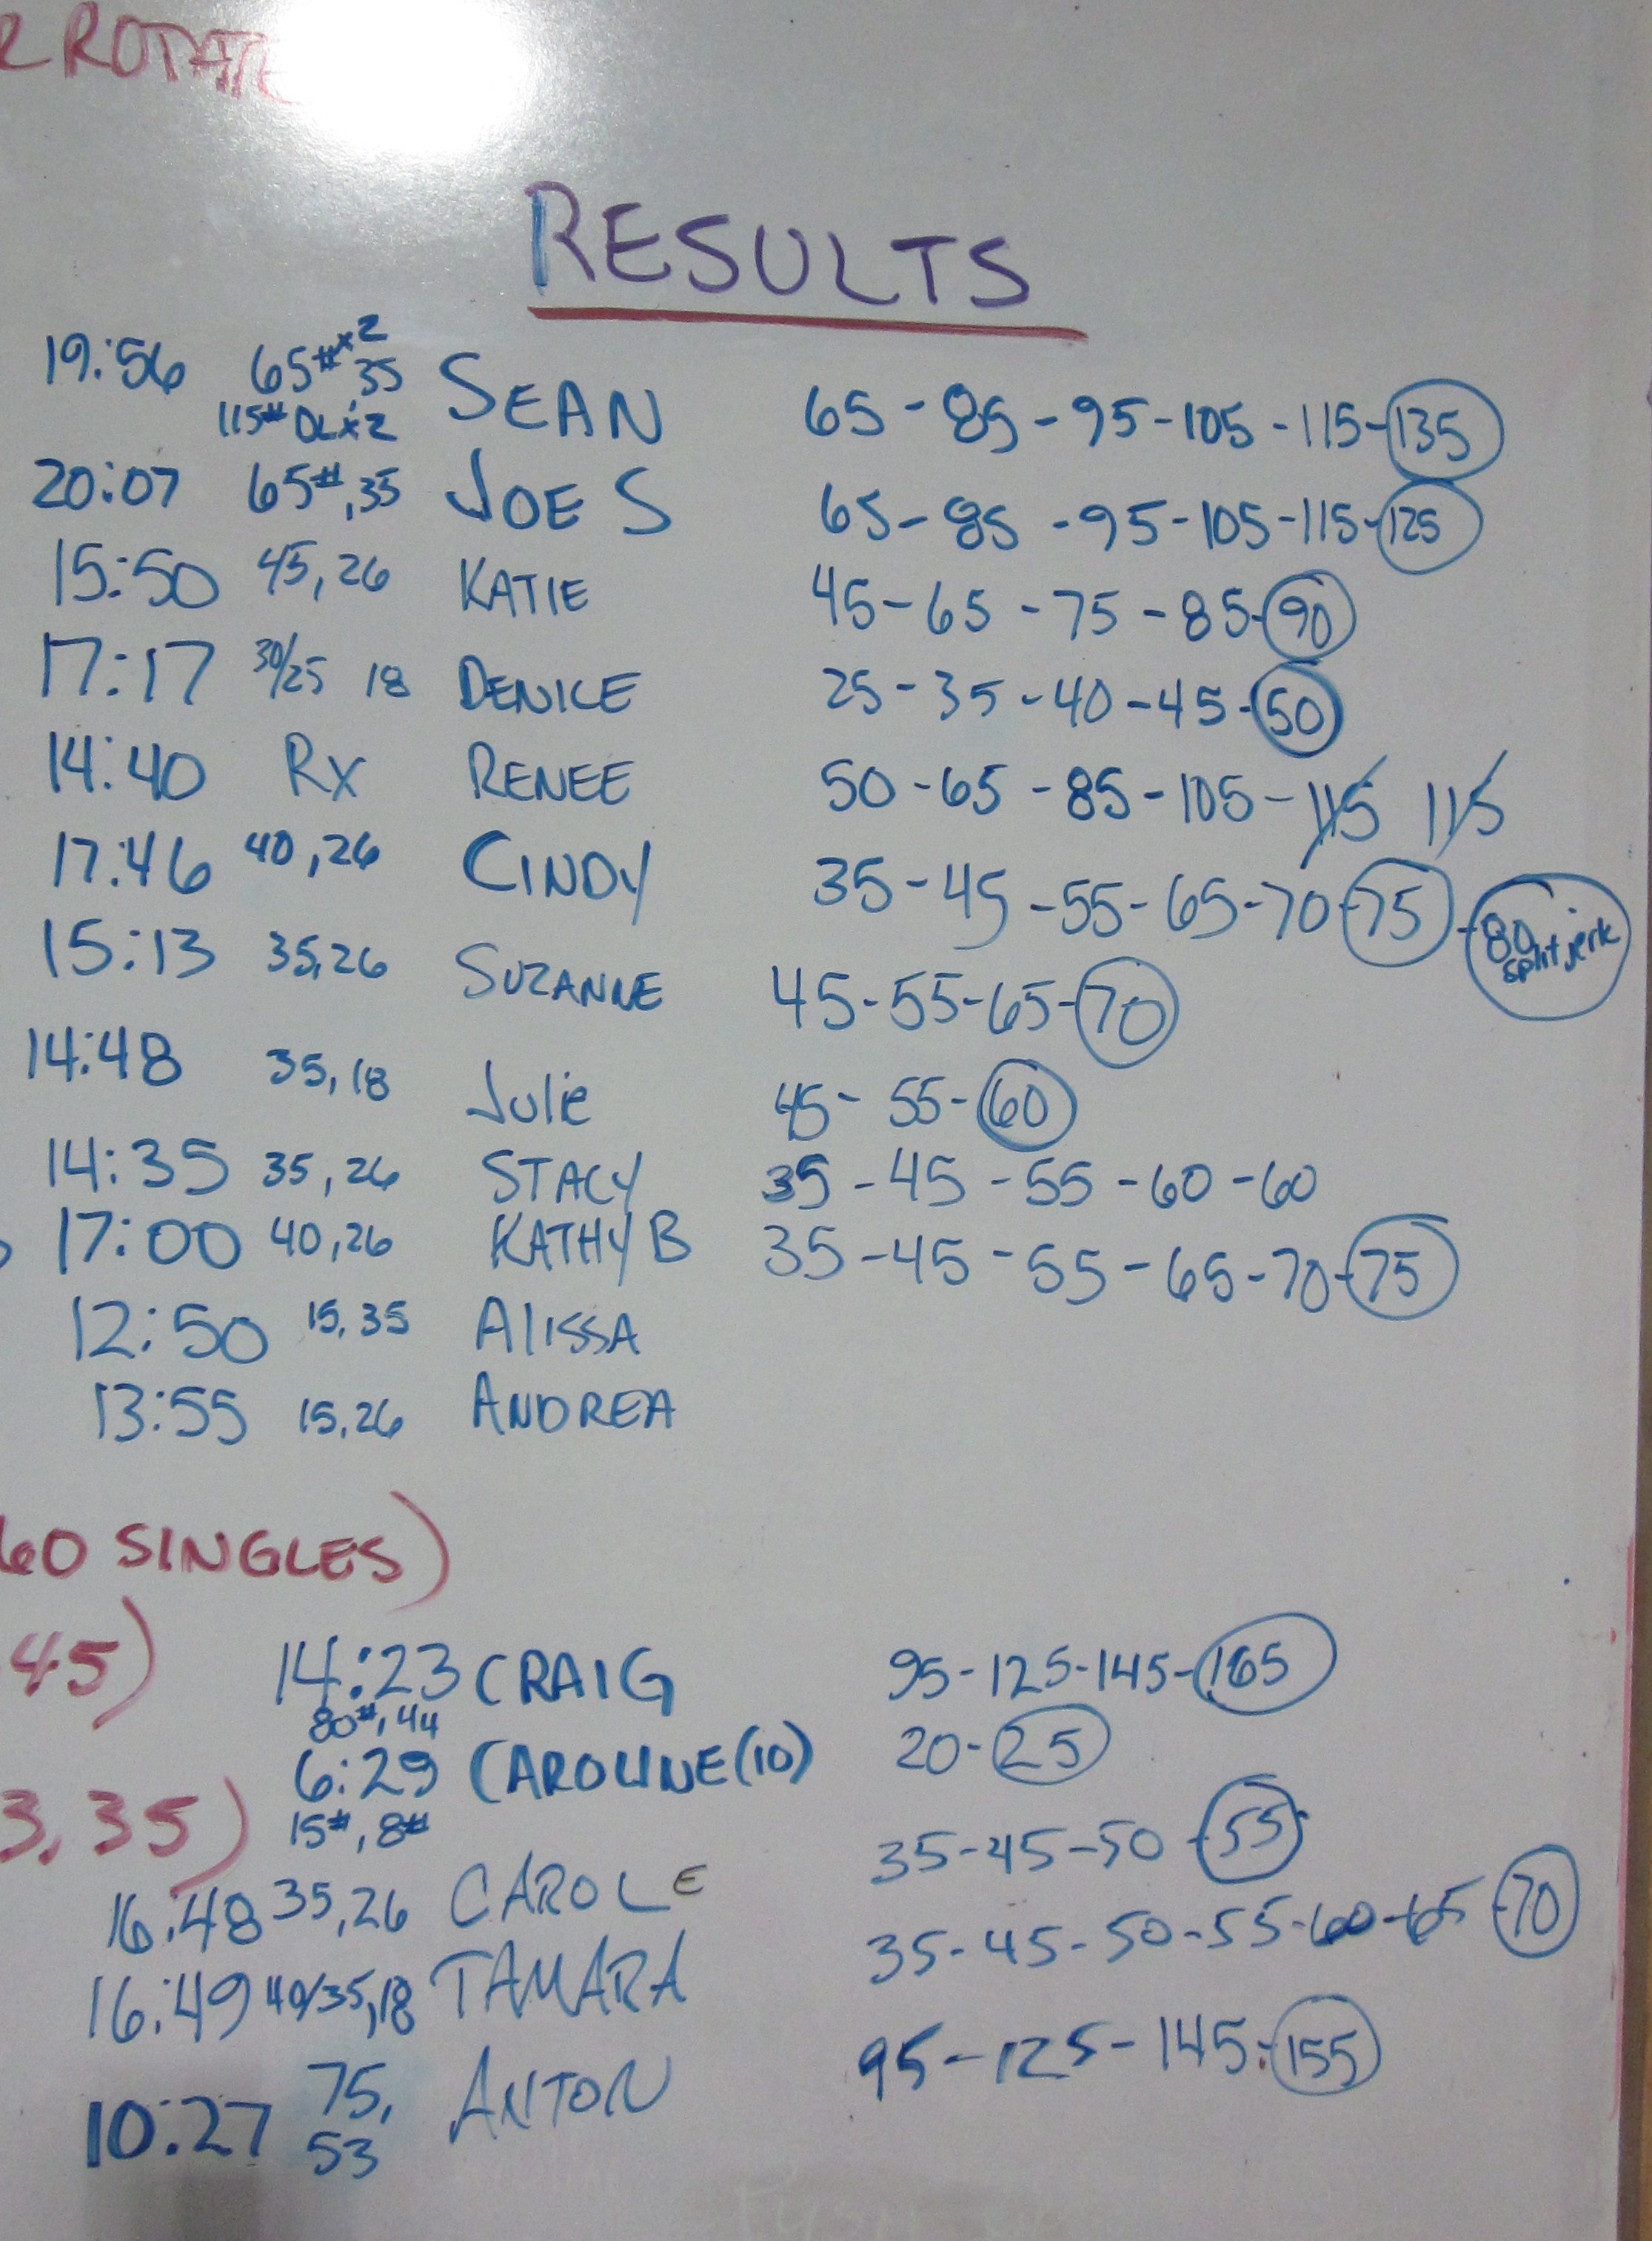 R ROTATE
RESULTS
19:56 65#x2, 35 SEAN 65-85-95-105-115-135
115# DL x2
20:07 65#, 35 JOE S 65-85-95-105-115-125
15:50 45, 26 KATIE 45-65-75-85-90
17:17 30/25 18 DENICE 25-35-40-45-50
14:40 Rx RENEE 50-65-85-105-115 115
17:46 40, 26 CINDY 35-45-55-65-70-75-80 split jerk
15:13 35, 26 SUZANNE 45-55-65-70
14:48 35, 18 Julie 45-55-60
14:35 35, 26 STACY 35-45-55-60-60
17:00 40, 26 KATHY B 35-45-55-65-70-75
12:50 15, 35 ALISSA
13:55 15, 26 ANDREA
60 SINGLES)
45)
14:23 CRAIG 95-125-145-165
80#, 44
6:29 CAROLINE (10) 20-25
15#, 8#
3, 35)
16:48 35, 26 CAROLE 35-45-50-55
16:49 40/35, 18 TAMARA 35-45-50-55-60-65-70
10:27 75, 53 ANTON 95-125-145-155